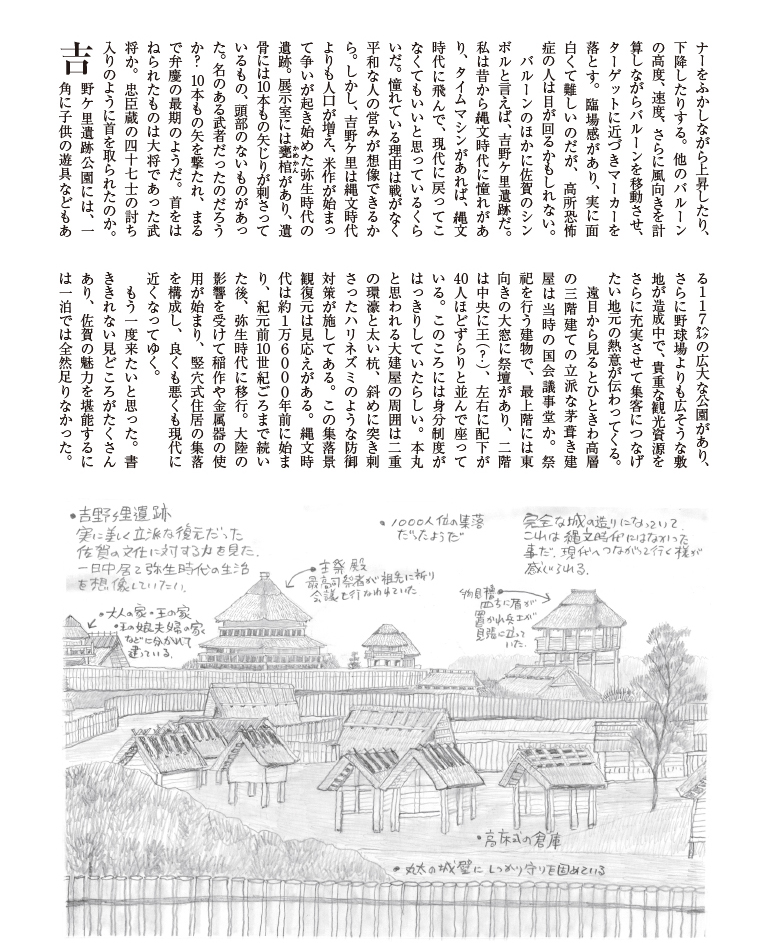 ナーをふかしながら上昇したり、
下降したりする。他のバルーン
の高度、速度、さらに風向きを計
算しながらバルーンを移動させ、
ターゲットに近づきマーカーを
落とす。臨場感があり、実に面
白くて難しいのだが、高所恐怖
症の人は目が回るかもしれない。
バルーンのほかに佐賀のシン
ボルと言えば、吉野ケ里遺跡だ。
私は昔から縄文時代に憧れがあ
り、タイムマシンがあれば、縄文
時代に飛んで、現代に戻ってこ
なくてもいいと思っているくら
いだ。憧れている理由は戦がなく
平和な人の営みが想像できるか
ら。しかし、吉野ケ里は縄文時代
よりも人口が増え、米作が始まっ
て争いが起き始めた弥生時代の
遺跡。展示室には甕棺があり、遺
かめかん
骨には10本もの矢じりが刺さって
いるもの、頭部のないものがあっ
た。名のある武者だったのだろう
か? 10本もの矢を撃たれ、まる
で弁慶の最期のようだ。首をは
ねられたものは大将であった武
将か。忠臣蔵の四十七士の討ち
入りのように首を取られたのか。
吉野ケ里遺跡公園には、一
角に子供の遊具などもあ
る117㌶の広大な公園があり、
さらに野球場よりも広そうな敷
地が造成中で、貴重な観光資源を
さらに充実させて集客につなげ
たい地元の熱意が伝わってくる。
遠目から見るとひときわ高層
の三階建ての立派な茅葺き建
屋は当時の国会議事堂か。祭
祀を行う建物で、最上階には東
向きの大窓に祭壇があり、二階
は中央に王(?)、左右に配下が
40人ほどずらりと並んで座って
いる。このころには身分制度が
はっきりしていたらしい。本丸
と思われる大建屋の周囲は二重
の環濠と太い杭、斜めに突き刺
さったハリネズミのような防御
対策が施してある。この集落景
観復元は見応えがある。縄文時
代は約1万6000年前に始ま
り、紀元前10世紀ごろまで続い
た後、弥生時代に移行。大陸の
影響を受けて稲作や金属器の使
用が始まり、竪穴式住居の集落
を構成し、良くも悪くも現代に
近くなってゆく。
もう一度来たいと思った。書
ききれない見どころがたくさん
あり、佐賀の魅力を堪能するに
は一泊では全然足りなかった。
•吉野ケ里遺跡
実に美しく立派な復元だった
佐賀の文化に対する力を見た。
一日中居て弥生時代の生活
を想像していたい。
•1000人位の集落
だったようだ
完全な城の造りになっていて、
これは縄文時代にはなかった
事だ。現代へつながって行く様が
感じられる。
•主祭殿
最高司祭者が祖先に祈り
会議も行なわれていた
物見櫓
四方に盾が
置かれ兵士が
見張に立って
いた。
•大人の家・王の家
•王の娘夫婦の家
などに分かれて
建っている。
•高床式の倉庫
•丸太の城壁にしっかり守りを固めている